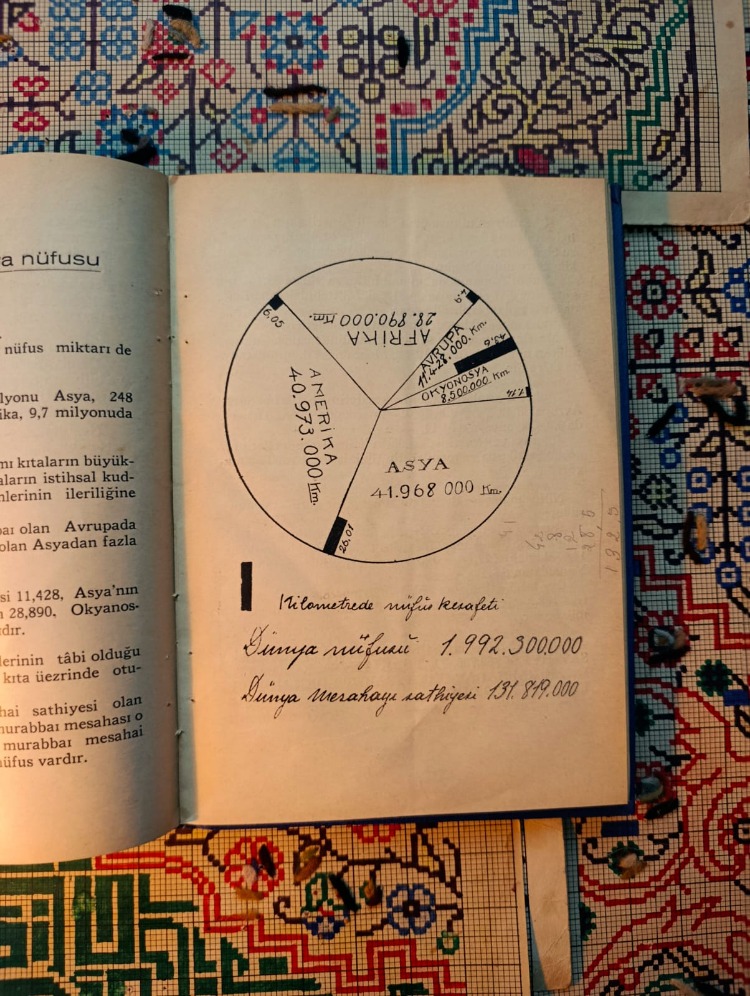 a nüfusu
nüfus miktarı de
lyonu Asya, 248
ika, 9,7 milyonuda
mı kıtaların büyük-
aların istihsal kud-
nlerinin ileriliğine
baı olan Avrupada
olan Asyadan fazla
si 11,428, Asya'nın
n 28,890, Okyanos-
dır.
lerinin tâbi olduğu
kıta üezrinde otu-
hai sathiyesi olan
murabbaı mesahası o
murabbaı mesahai
nüfus vardır.
6.05
AFRİKA
28.890.000 Km.
4.9
AVRUPA
11.428.000. Km.
43.6
OKYONOSYA
8,500.000. Km.
1.14
AMERİKA
40.973.000 Km.
ASYA
41.968 000 Km.
26.01
Kilometrede nüfus kesafeti
Dünya nüfusu 1.992.300.000
Dünya mesahayı sathiyesi 131.849.000